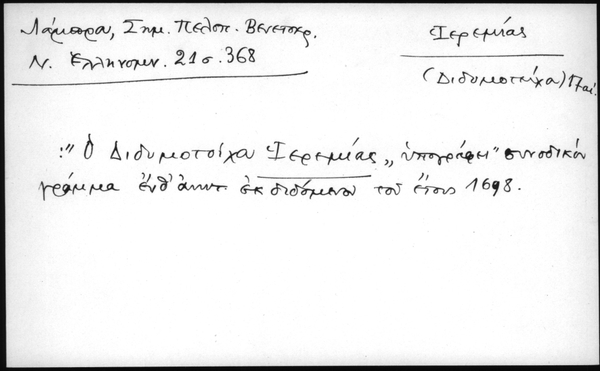 Λάμπρου, Σημ. Πελοπ. Βενετοκρ.
Ν. Ἑλληνομν. 21 σ. 368
Ἱερεμίας
(Διδυμοτείχου) 17 αἰ.
:" Ὁ Διδυμοτοίχου Ἱερεμίας „ ὑπογράφει" συνοδικόν
γράμμα ἐνθ' ἀνωτ. ἐκδιδόμενον τοῦ ἔτους 1698.